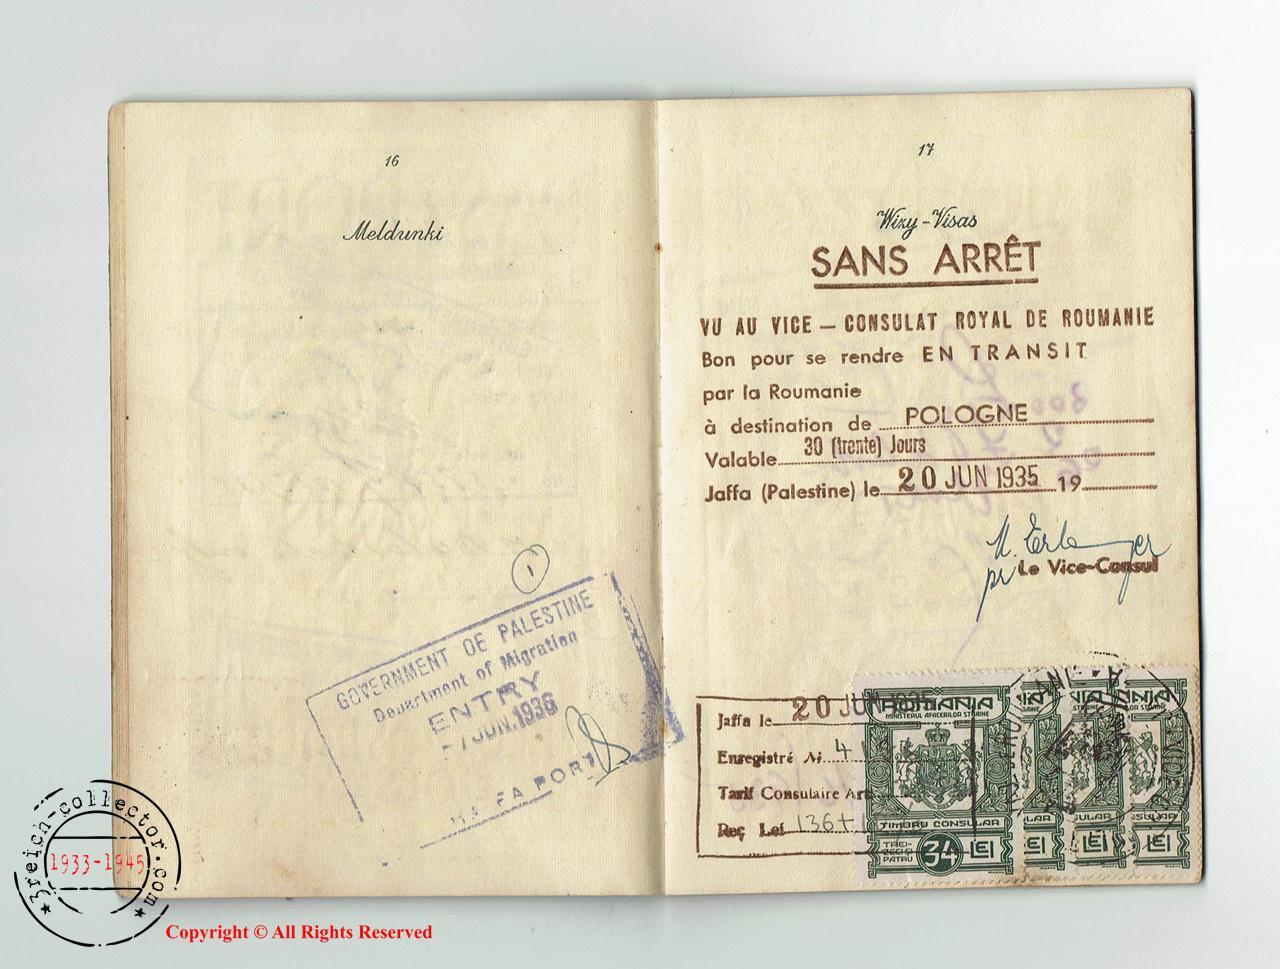 16
Meldunki
1
GOVERNMENT OF PALESTINE
Department of Migration
ENTRY
-7 JUN. 1936
PORT
17
Wizy-Visas
SANS ARRÊT
VU AU VICE - CONSULAT ROYAL DE ROUMANIE
Bon pour se rendre EN TRANSIT
par la Roumanie
à destination de POLOGNE
Valable 30 (trente) Jours
Jaffa (Palestine) le 20 JUN 1935 19
pr Le Vice-Consul
Jaffa le 20 JUN 1935
Enregistré № 41
Tarif Consulaire Art
Reç Lei 136+
ROMANIA
MINISTERUL AFACERILOR STRAINE
TIMBRU CONSULAR
TREI-
ZECI SI
PATRU
34 LEI
LEI
LEI
LEI
3reich-collector.com
1933-1945
Copyright © All Rights Reserved